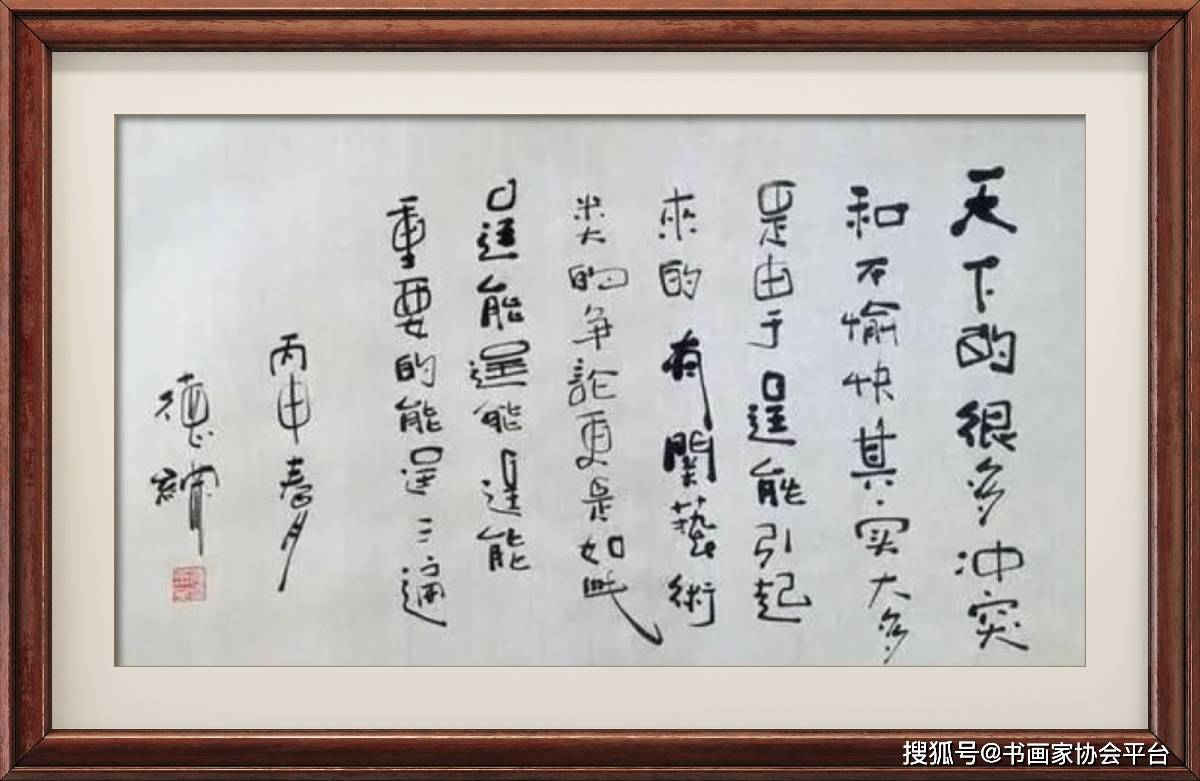 天下的很多冲突
和不愉快其实大多
是由于逞能引起
来的有関藝術
类的争論更是如此
逞能逞能逞能
重要的能逞三遍
丙申春月
德
搜狐号@书画家协会平台